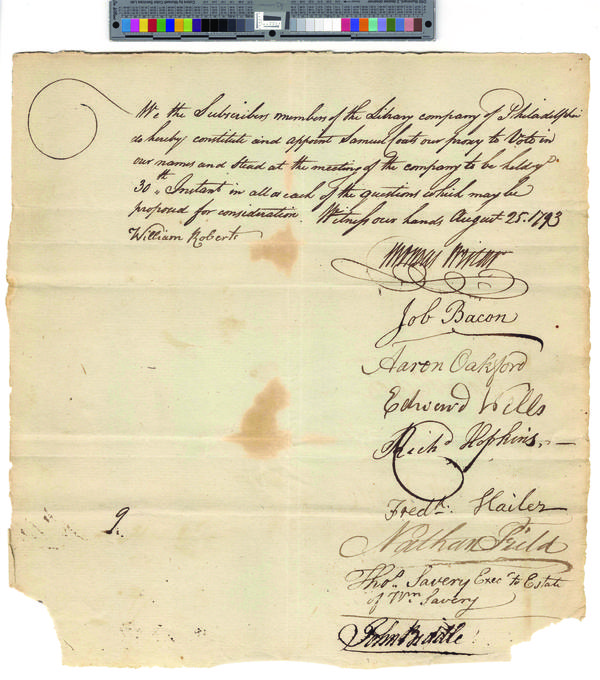 We the Subscribers members of the Library company of Philadelphia
do hereby constitute and appoint Samuel Coats our proxy to Vote in
our names and Stead at the meeting of the company to be held yᵉ
30.th Instant in all & each of the questions which may be
proposed for consideration. Witness our hands August 25. 1793
William Roberts
Thomas
Job Bacon
Aaron Oakford
Edward Wills
Richd Hopkins
Fredk. Hailer
Nathan Field
9.
Thos. Savery Exec.r to Estate
of Wm Savery
John Biddle